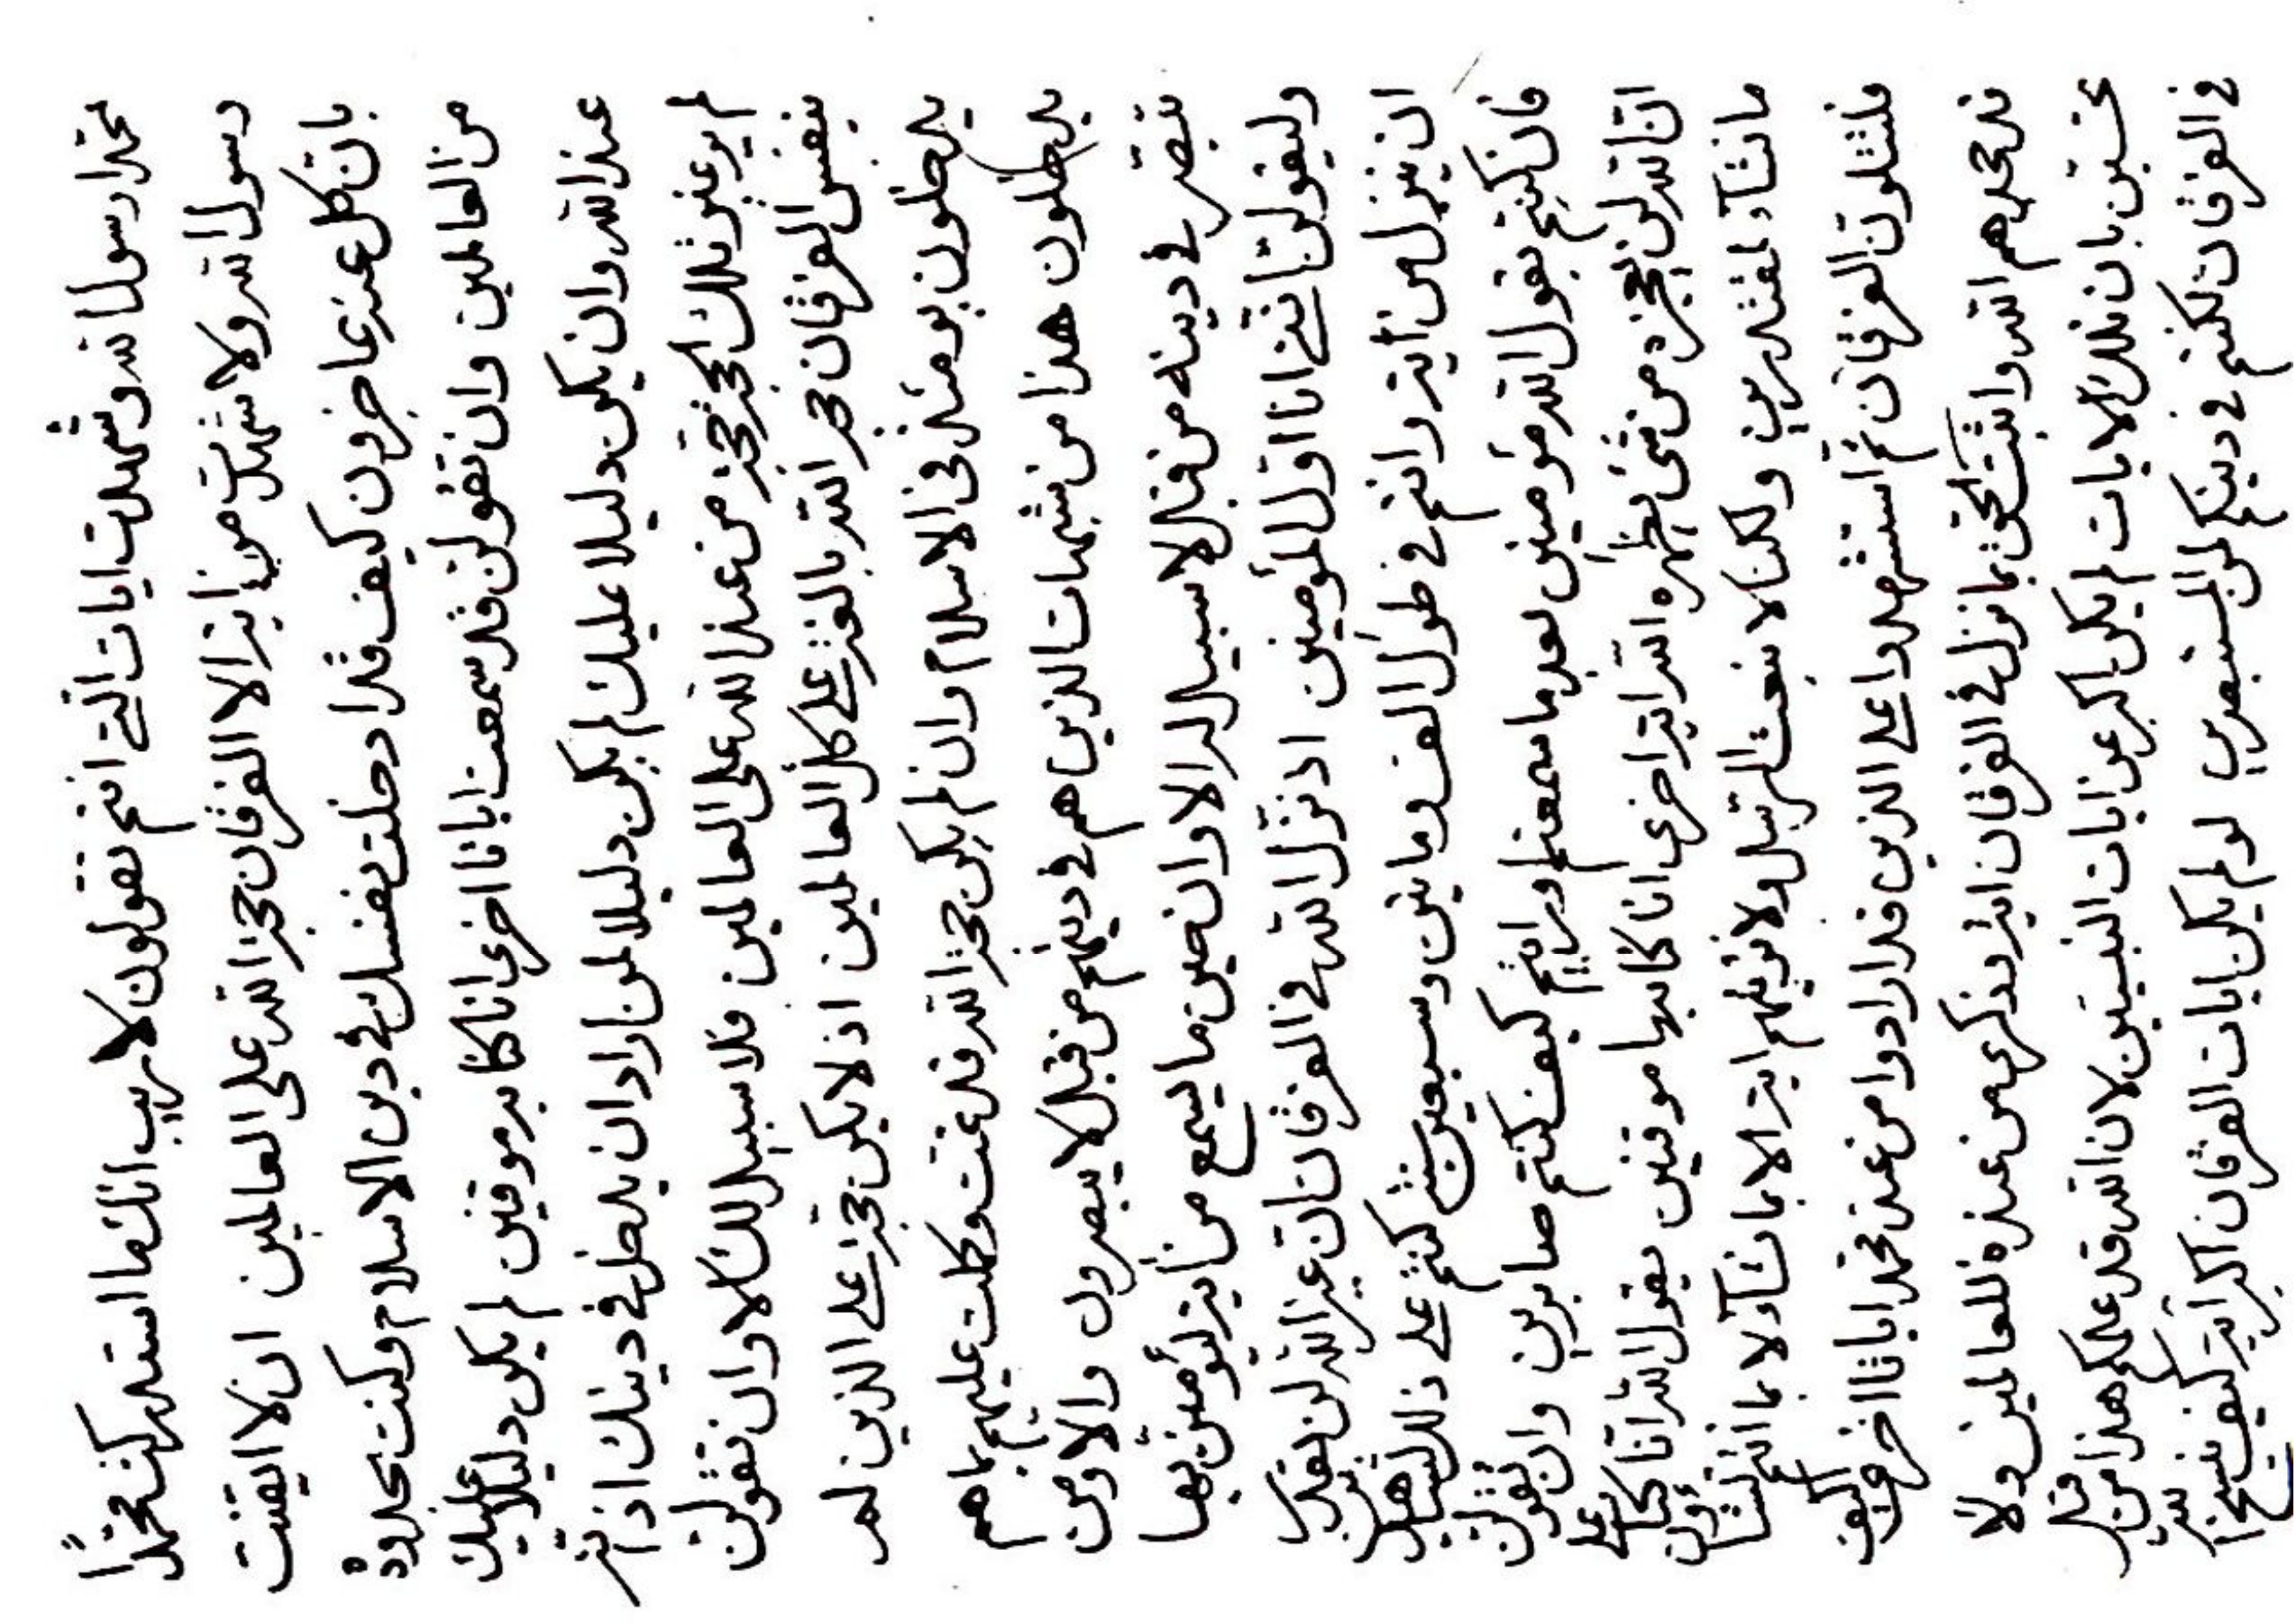 محمدا رسول الله وشهدت ايات التي انتم تقولون لاريب انك ما استدركت محمدا
رسول الله ولا شهدت من اية الا الفرقان حجة الله على العالمين ان لا ايقنت
بان كل عنه عاجزون كيف قد ادخلت نفسك في دين الاسلام وكنت بحدوده
من العالمين وان تقولن قد سمعت اياتا اخرى انا كنا به موقنين لم يكن دليلا عليك
عند الله وان يكون دليلا عليك لم يكن دليلا لمن اراد ان يدخل في دينك اذ انتم
لم يرغبو تلك الحجة حجة من عند الله على العالمين فلا سبيل لك الا وان تقولن
بنفس الفرقان حجة الله بالغة على كل العالمين اذ لا يكن حجة على الذين لم
يدخلون يومئذ في الاسلام وان لم يكن حجة الله قد تمت وكملت عليهم بما هم
يدخلون هذا من شبهات الذين هم في دينهم من قبل لا يبصرون والا ومن
تبصر في دينه من قبل لا سبيل له الا وان حين ما يسمع من اية ليؤمنن بها
وليقولن انني انا اول المؤمنين اذ نزل الله في الفرقان ان غير الله لن يقدر
ان ينزل من اية وانتم في طول الف وماتين وسبعين سنة كنتم على ذلك لشاهدين
فان كنتم بقول الله مؤمنين بعد ما سمعتم او رايتم كيف كنتم صابرين وان تقولن
ان الله لن يعجزه من شئ يظهره الله اية اخرى انا كنا بها موقنين يقول الله انا كنا على
ما نشاء لمقتدرين ولكنا لا نبعث الرسل ولا نؤتيهم اية الا بما نشاء لا بما انتم تشاؤن
فلتتلون الفرقان ثم استشهدوا على الذين قد ارادوا من عند محمد اياتا اخرى كيف
قد حجدهم الله واثبت الحق بما نزل في الفرقان اية ذكرى من عنده للعالمين ولا
تحسبن بان تلك الايات لم يكن اكبر عن ايات النبيين لان الله قد علمكم هذا من قبل
في الفرقان لكنتم في دينكم لمن المستبصرين لو لم يكن ايات الفرقان اكبر اية كيف نسخ